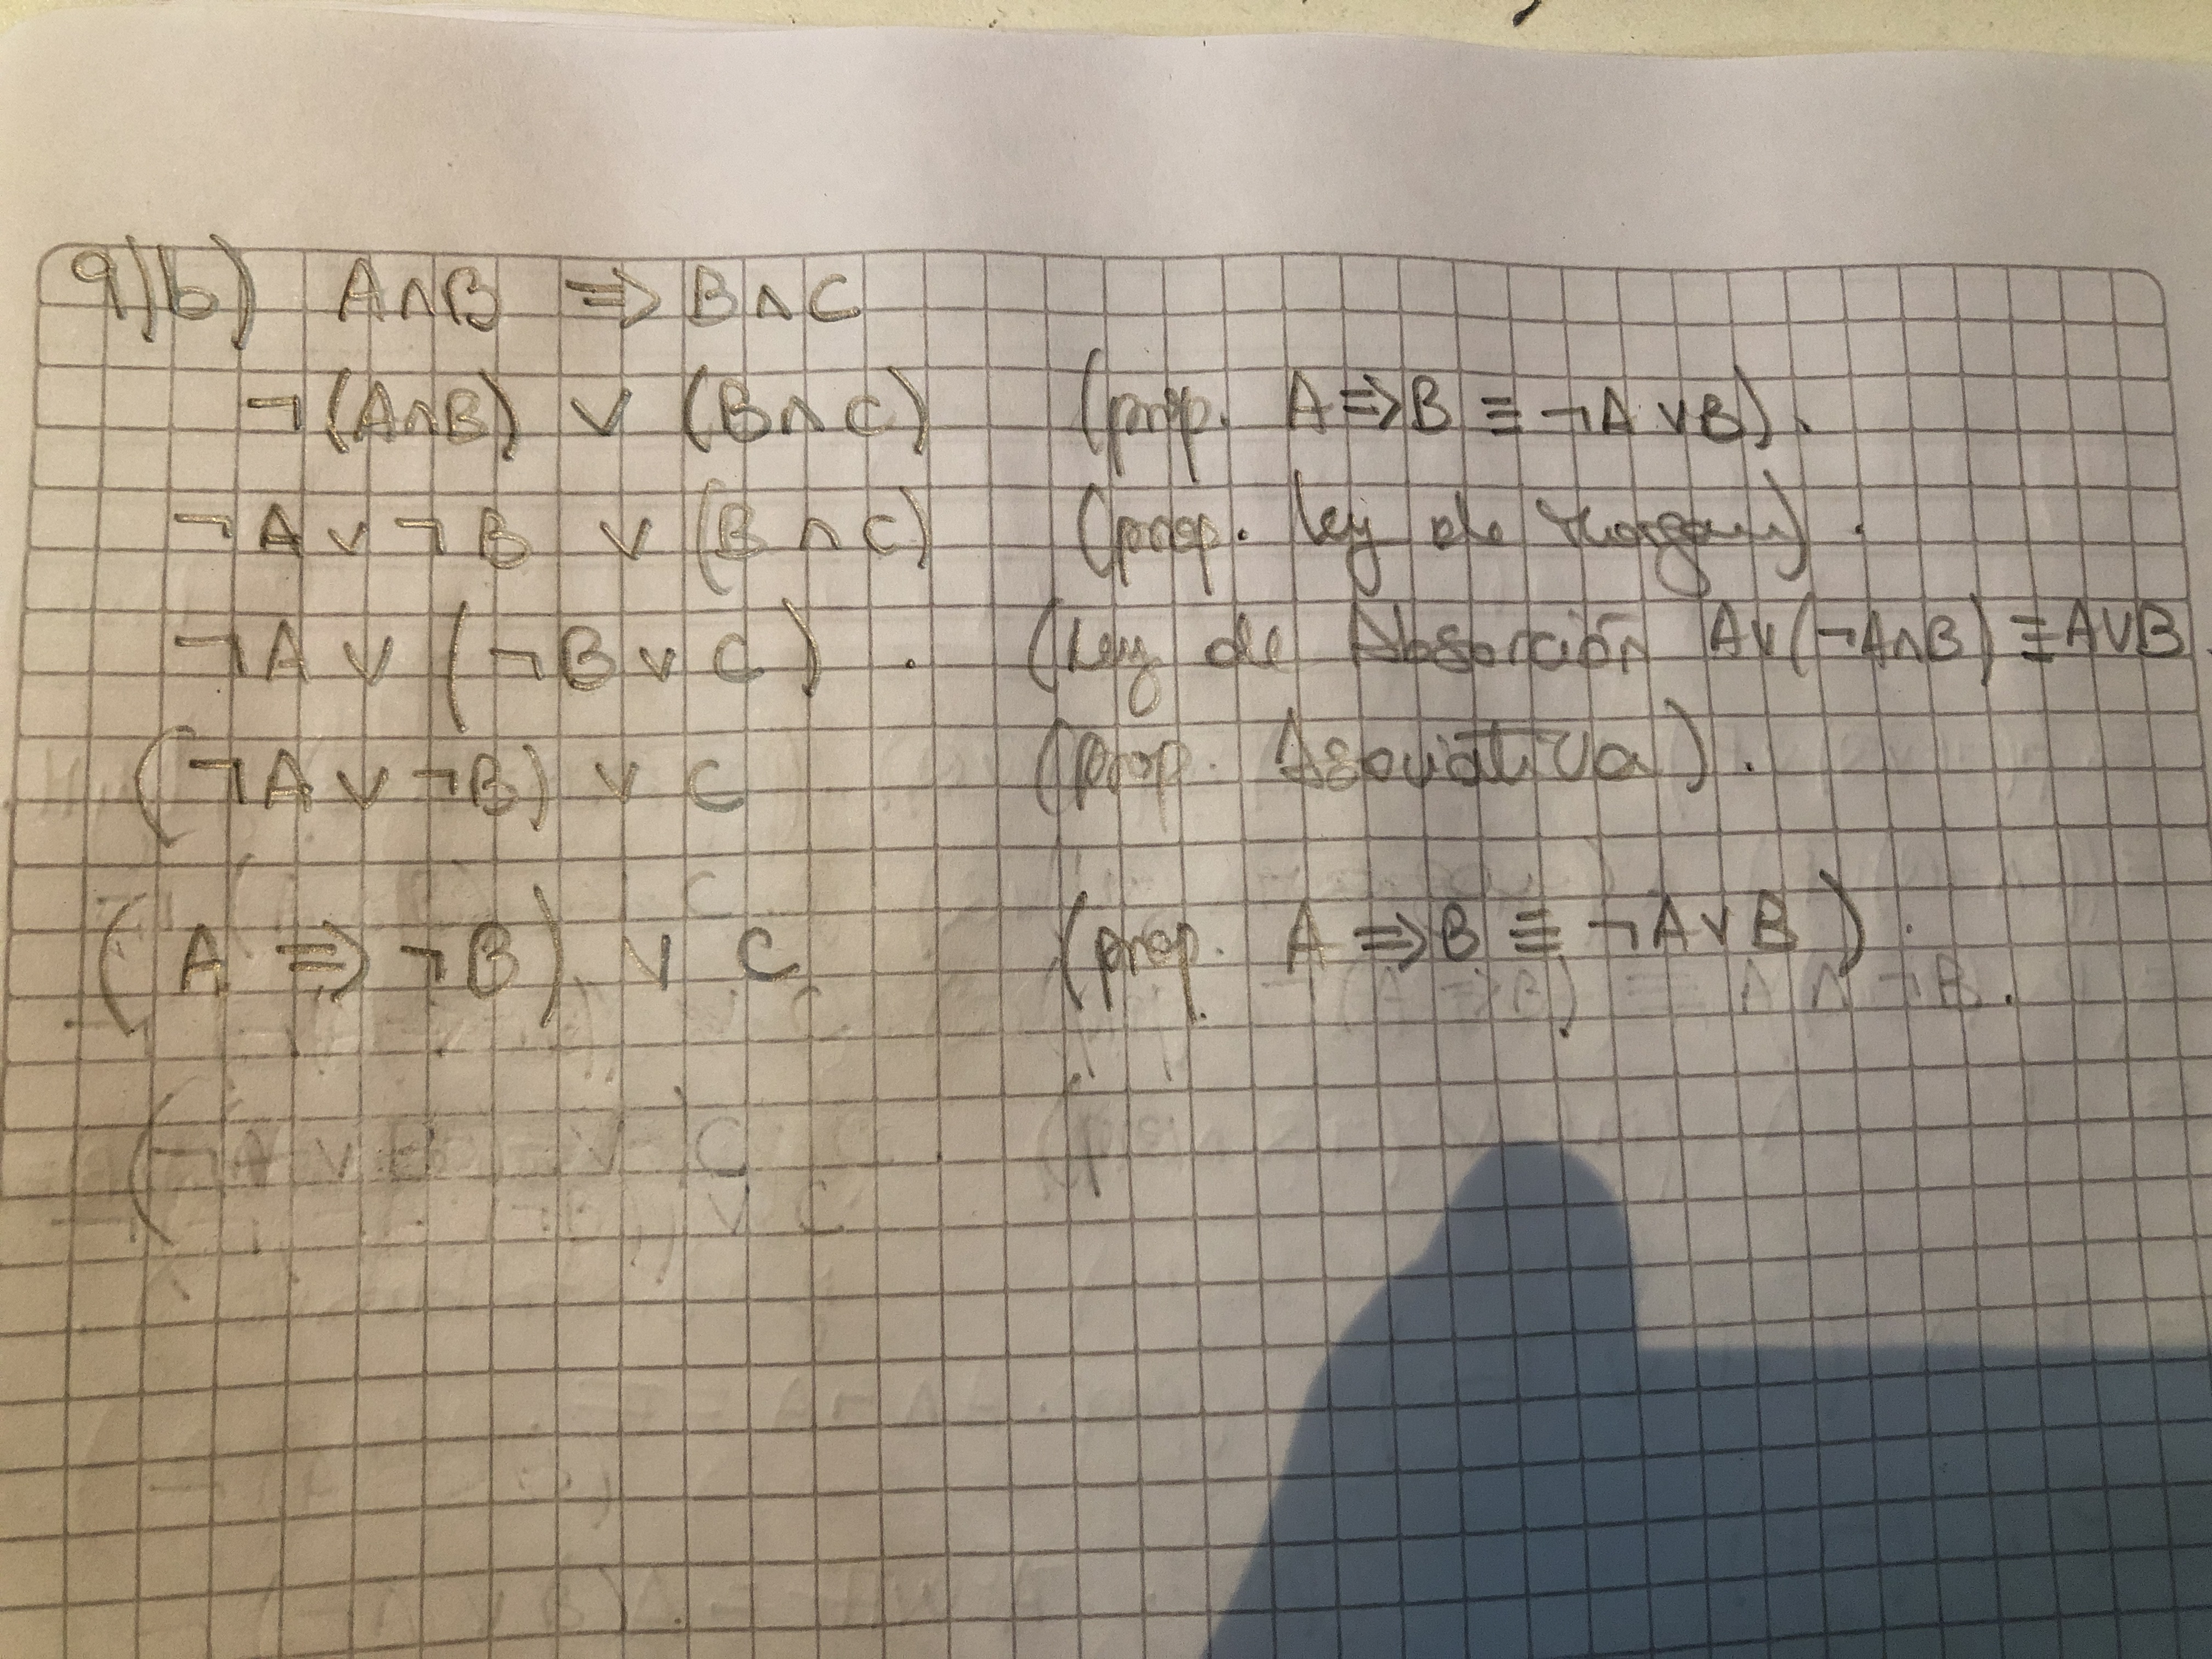 9)b) A∧B ⇒ B∧C
¬(A∧B) ∨ (B∧C) (prop. A⇒B ≡ ¬A∨B).
¬A∨¬B ∨ (B∧C) (prop. ley de Morgan).
¬A∨(¬B∨C). (Ley de Absorción A∨(¬A∧B)≡A∨B.
(¬A∨¬B)∨C (Prop. Asociativa).
(A⇒¬B)∨C (prop. A⇒B ≡ ¬A∨B).